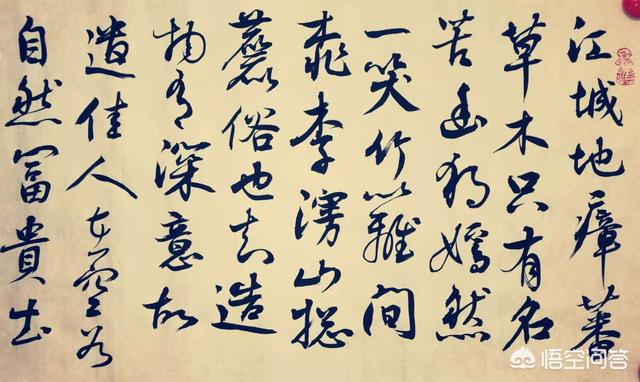 江城地瘴蕃
草木只有名
苦幽独嫣然
一笑竹籬间
桃李漫山総
麤俗也知造
物有深意故
遣佳人在空谷
自然富貴出
悟空问答